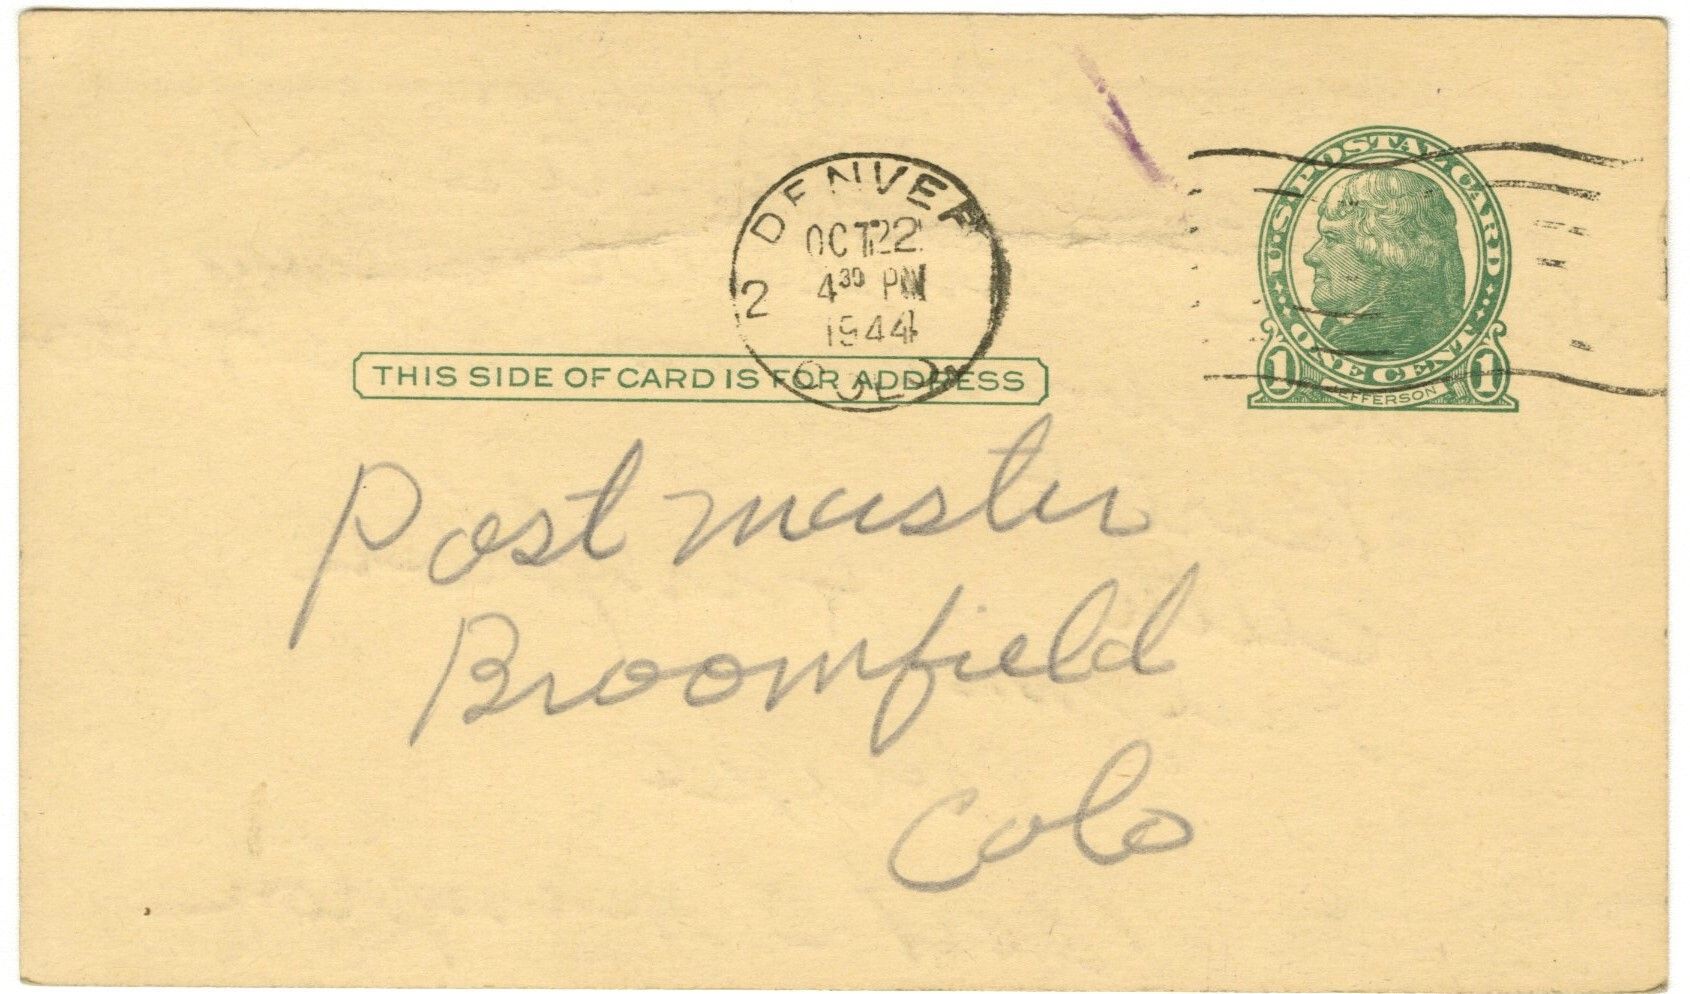 U·S·POSTAL CARD
ONE CENT
1 1
JEFFERSON
2 DENVER
OCT 22
4 30 PM
1944
COLO.
THIS SIDE OF CARD IS FOR ADDRESS
Post master
Broomfield
Colo